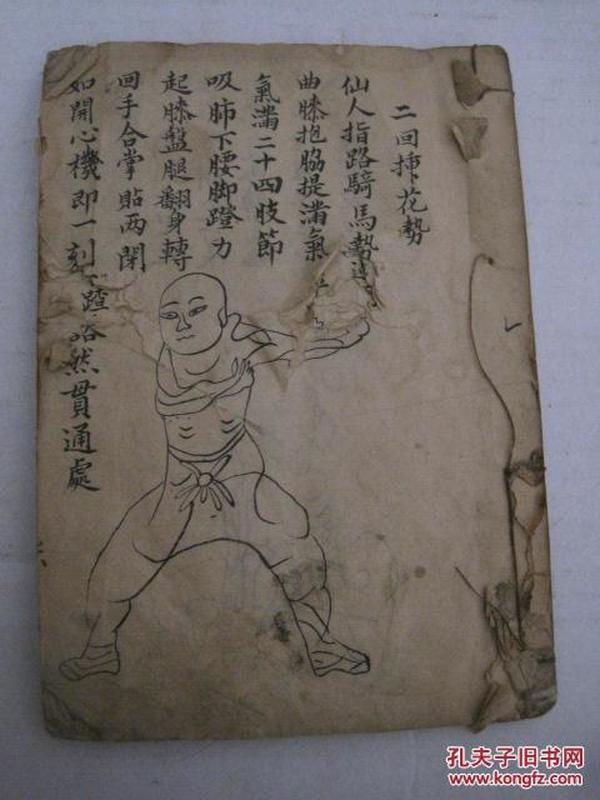 二回挿花勢
仙人指路騎馬勢
曲膝抱脇提滿氣
氣滿二十四肢節
吸肺下腰脚蹬力
起膝盤腿翻身轉
回手合掌貼两閉
如開心機即一刻
然貫通處
六
孔夫子旧书网
www.kongfz.com